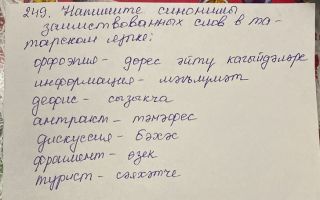 249. Напишите синонимы
заимствованных слов в та-
тарском языке:
орфоэпия - дөрес әйтү кагыйдәләре
информация - мәгълүмат
дефис - сызыкча
антракт - тәнәфес
дискуссия - бәхәс
фрагмент - өзек
турист - сәяхәтче